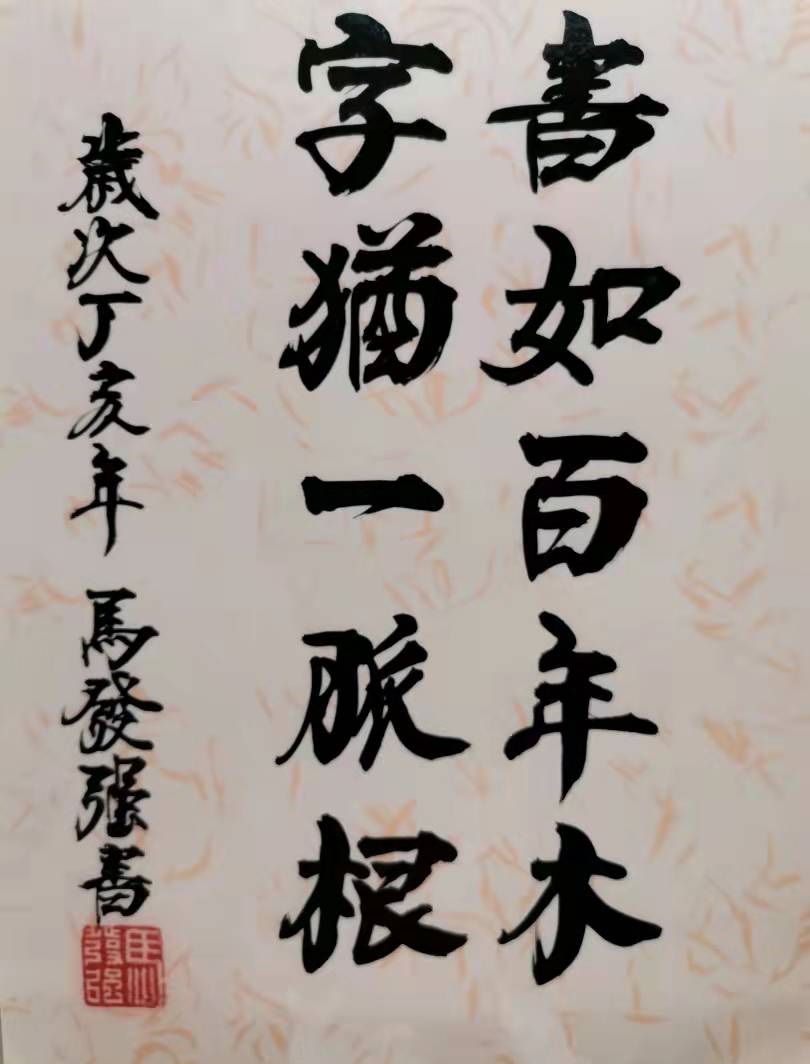 書如百年木
字猶一脈根
歲次丁亥年 馬發强書
馬發强